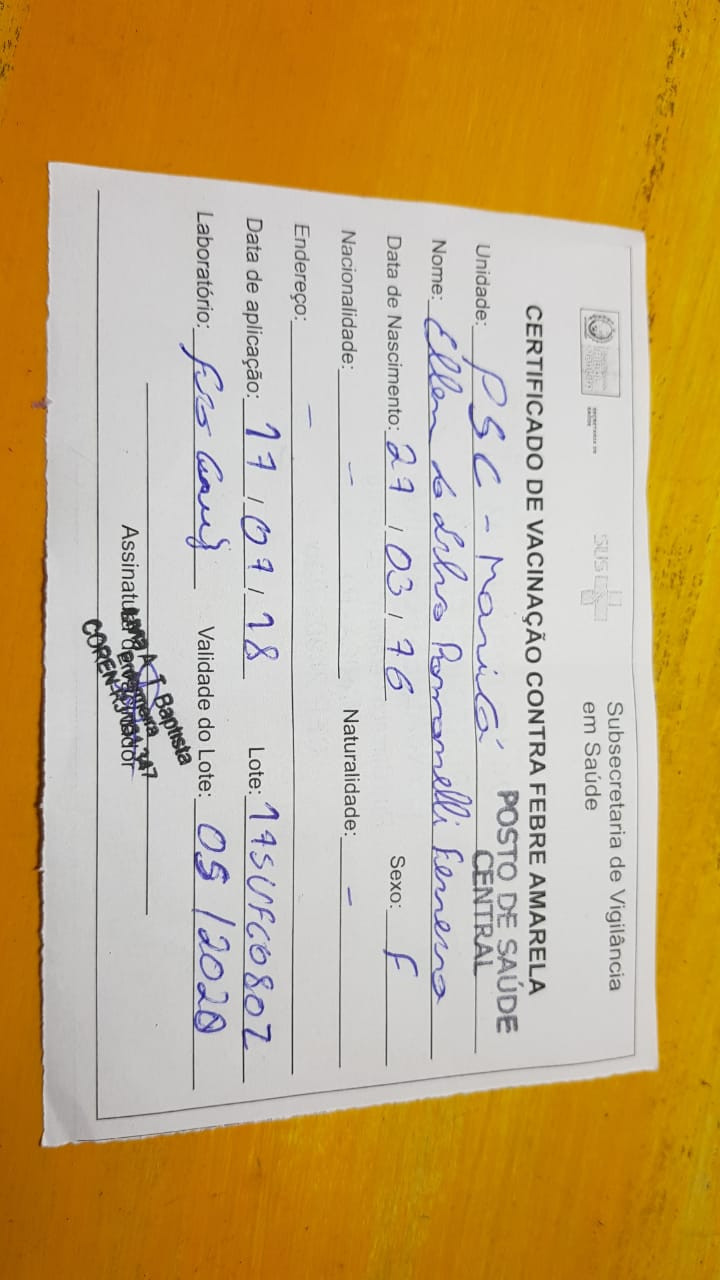 SUS
Subsecretaria de Vigilância
em Saúde
CERTIFICADO DE VACINAÇÃO CONTRA FEBRE AMARELA
POSTO DE SAÚDE
CENTRAL
Unidade: PSC - Maricá
Nome: Ellen da Silva Romanelli Ferreira
Data de Nascimento: 27/03/76 Sexo: F
Nacionalidade: - Naturalidade: -
Endereço: -
Data de aplicação: 17/07/18 Lote:
Laboratório: Validade do Lote: 05/2020
A. T. Baptista
Assinatura
COREN-RJ